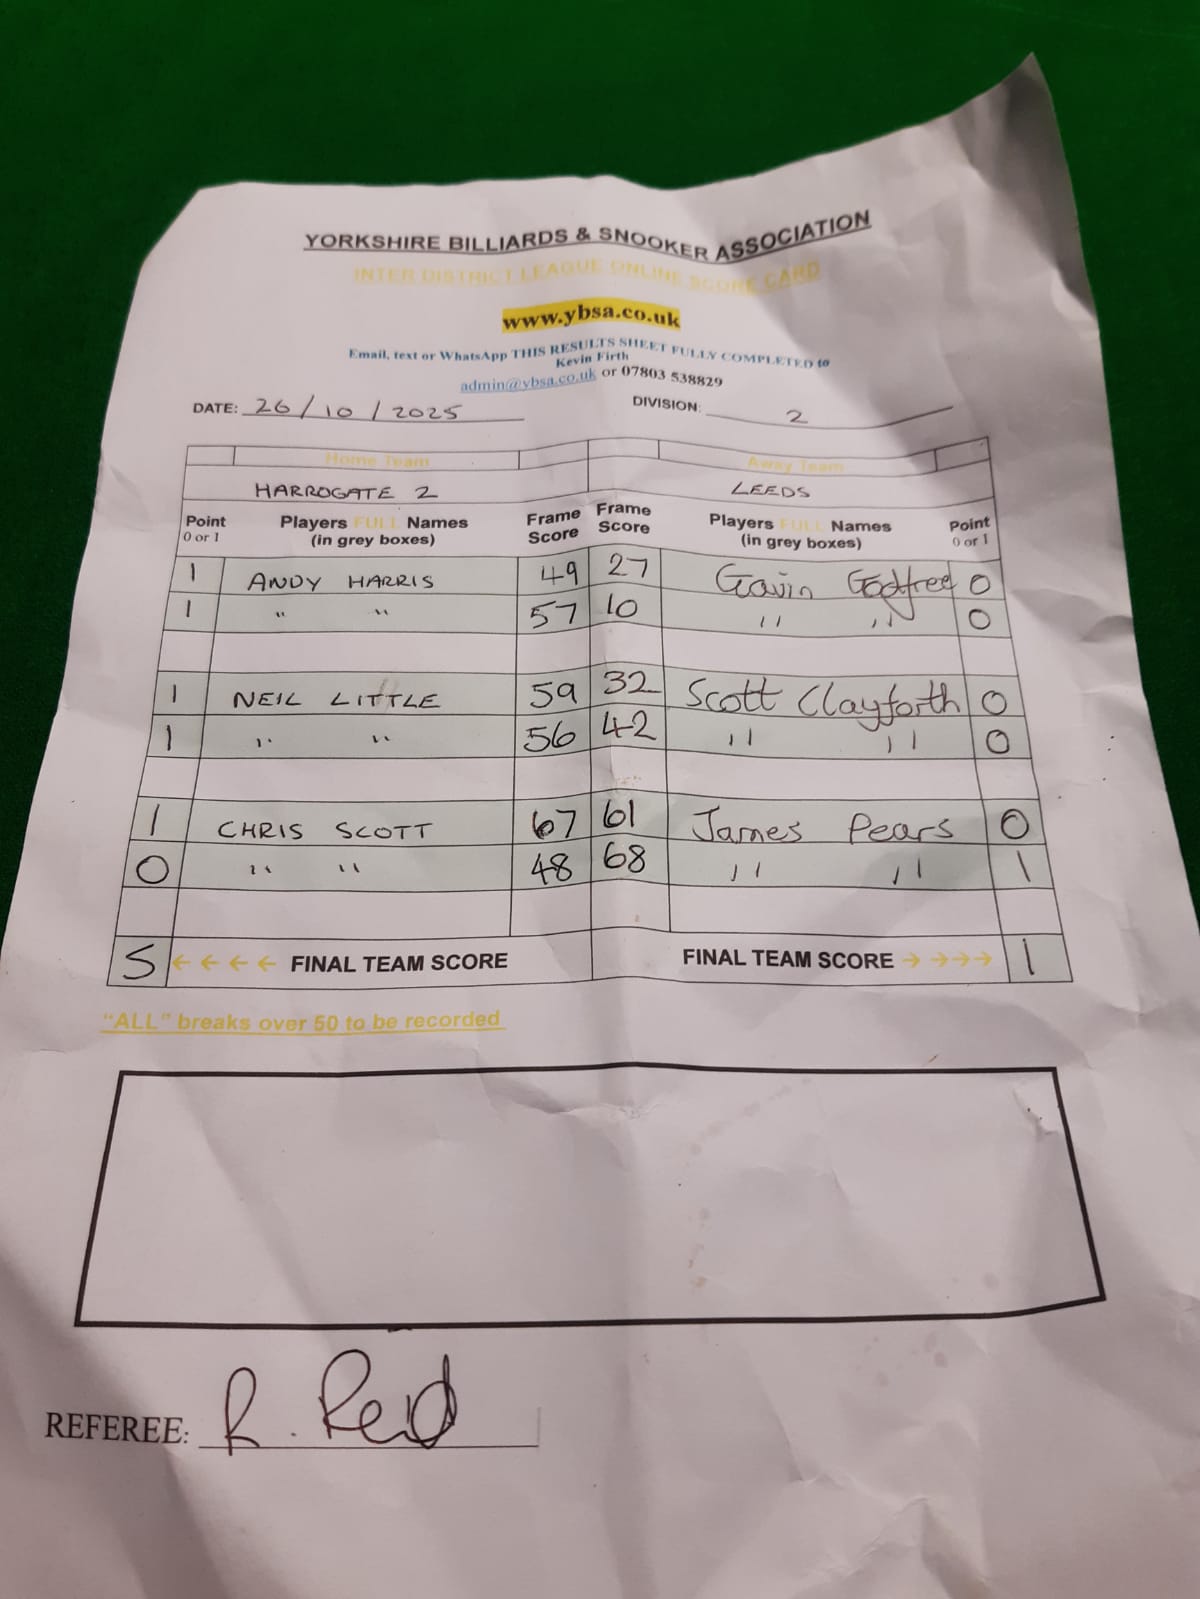 YORKSHIRE BILLIARDS & SNOOKER ASSOCIATION
INTER DISTRICT LEAGUE ONLINE SCORE CARD
www.ybsa.co.uk
Email, text or WhatsApp THIS RESULTS SHEET FULLY COMPLETED to
Kevin Firth
admin@ybsa.co.uk or 07803 538829
DATE: 26/10/2025 DIVISION: 2
Home Team Away Team
HARROGATE 2 LEEDS
Point Players FULL Names Frame Frame Players FULL Names Point
0 or 1 (in grey boxes) Score Score (in grey boxes) 0 or 1
1 ANDY HARRIS 49 27 Gavin Godfree 0
1 " " 57 10 " " 0
1 NEIL LITTLE 59 32 Scott Clayforth 0
1 " " 56 42 " " 0
1 CHRIS SCOTT 67 61 James Pears 0
0 " " 48 68 " " 1
5 ←←←← FINAL TEAM SCORE FINAL TEAM SCORE →→→→ 1
"ALL" breaks over 50 to be recorded
REFEREE: R. Reid